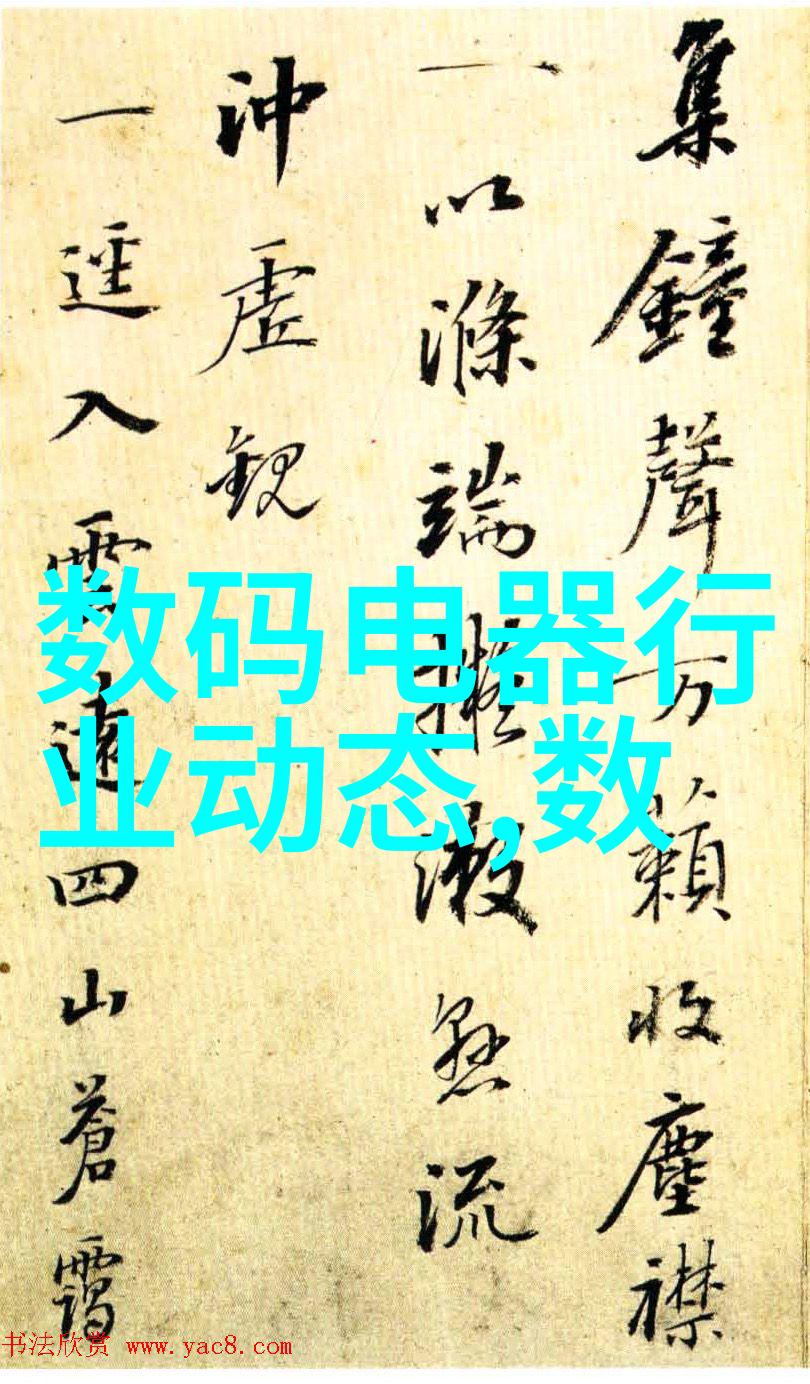 集鐘聲万籟收塵襟
一以滌端擬漱懸流
沖虛觀
一逕入雲遠四山蒼靄
数码电器行
业动态,数
书法欣赏 www.yac8.com